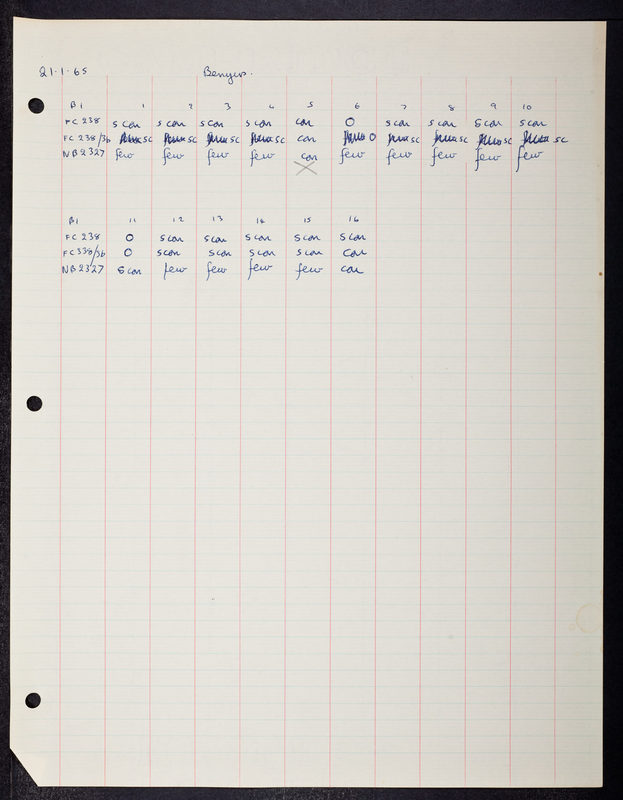 21·1·65 Benyus.
B1 1 2 3 4 5 6 7 8 9 10
FC 238 s con s con s con s con con O s con s con s con s con
FC 238/36 sc sc sc sc con O sc sc sc sc
NB2327 few few few few con few few few few few
B1 11 12 13 14 15 16
FC 238 O s con s con s con s con s con
FC 338/36 O s con s con s con s con con
NB2327 s con few few few few con